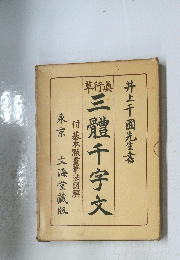 井上千圃先生書
真行草
三體千字文
付 基本點畫筆法図解
東京 文海堂藏版